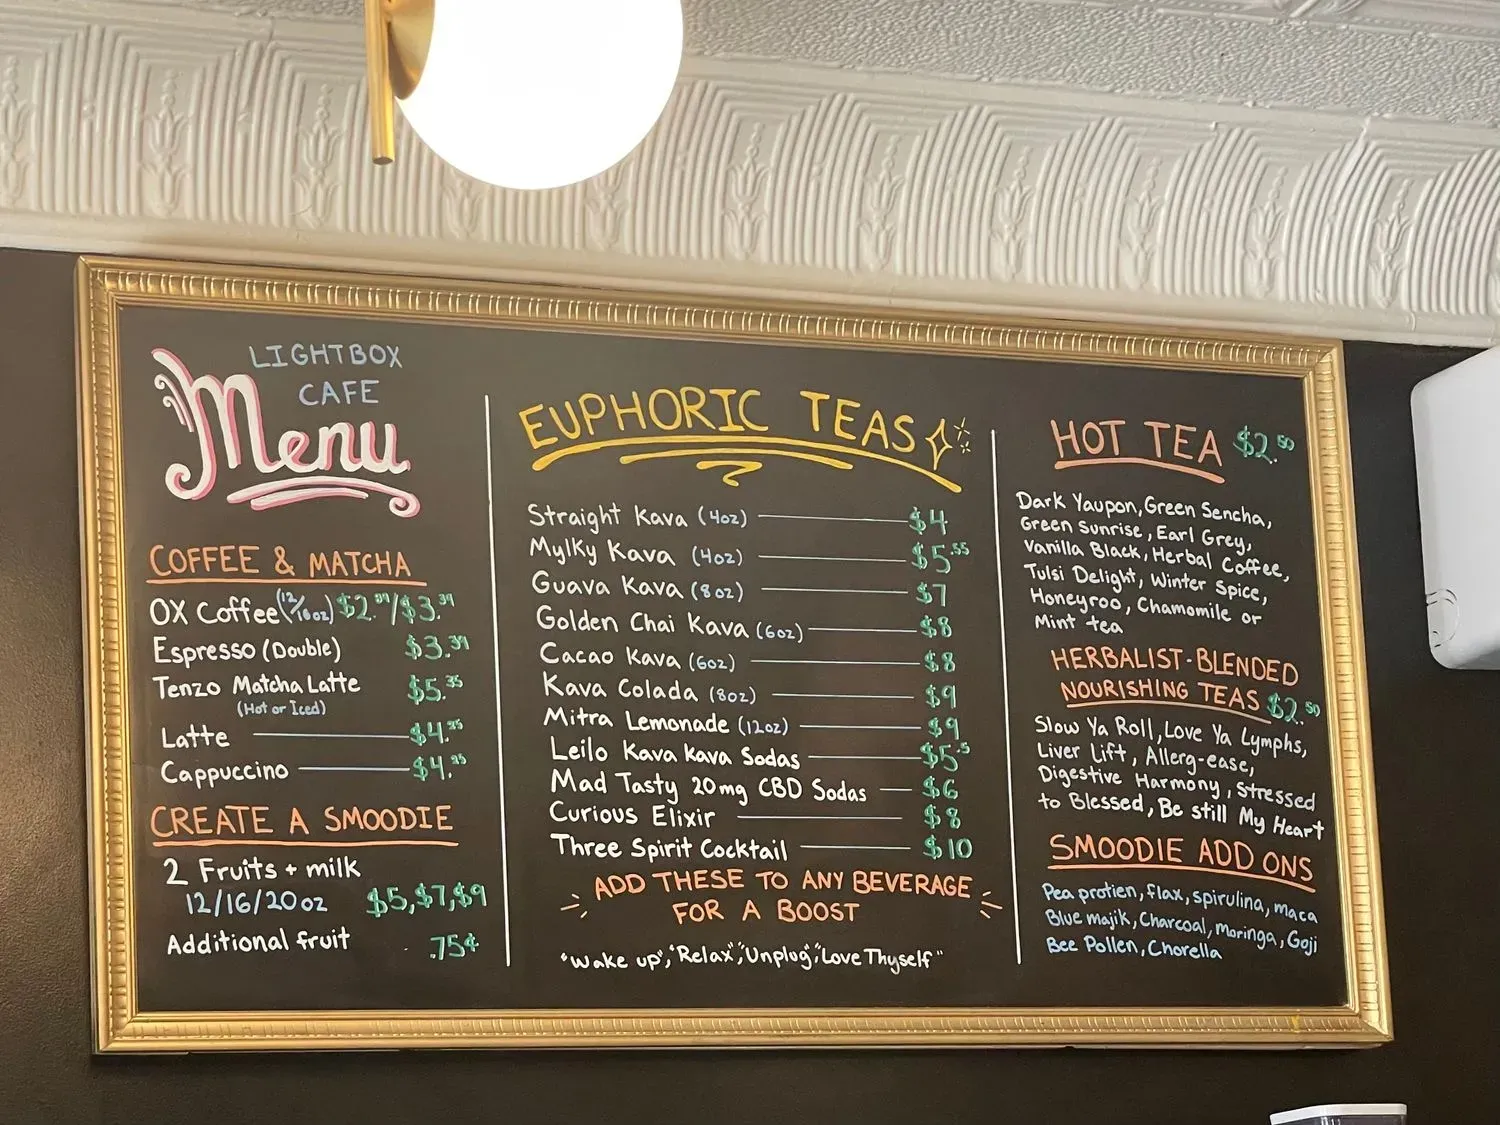 LIGHTBOX
CAFE
Menu
COFFEE & MATCHA
OX Coffee (12/16oz) $2.99/$3.39
Espresso (Double) $3.39
Tenzo Matcha Latte $5.35
(Hot or Iced)
Latte $4.25
Cappuccino $4.25
CREATE A SMOODIE
2 Fruits + milk
12/16/20oz $5,$7,$9
Additional fruit .75¢
EUPHORIC TEAS
Straight Kava (4oz) $4
Mylky Kava (4oz) $5.55
Guava Kava (8oz) $7
Golden Chai Kava (6oz) $8
Cacao Kava (6oz) $8
Kava Colada (8oz) $9
Mitra Lemonade (12oz) $9
Leilo Kava Kava Sodas $5.5
Mad Tasty 20mg CBD Sodas $6
Curious Elixir $8
Three Spirit Cocktail $10
ADD THESE TO ANY BEVERAGE
FOR A BOOST
"Wake up", "Relax", "Unplug", "Love Thyself"
HOT TEA $2.50
Dark Yaupon, Green Sencha,
Green Sunrise, Earl Grey,
Vanilla Black, Herbal Coffee,
Tulsi Delight, Winter Spice,
Honeyroo, Chamomile or
Mint tea
HERBALIST-BLENDED
NOURISHING TEAS $2.50
Slow Ya Roll, Love Ya Lymphs,
Liver Lift, Allerg-ease,
Digestive Harmony, Stressed
to Blessed, Be still My Heart
SMOODIE ADD ONS
Pea protien, flax, spirulina, maca
Blue majik, Charcoal, moringa, Goji
Bee Pollen, Chorella